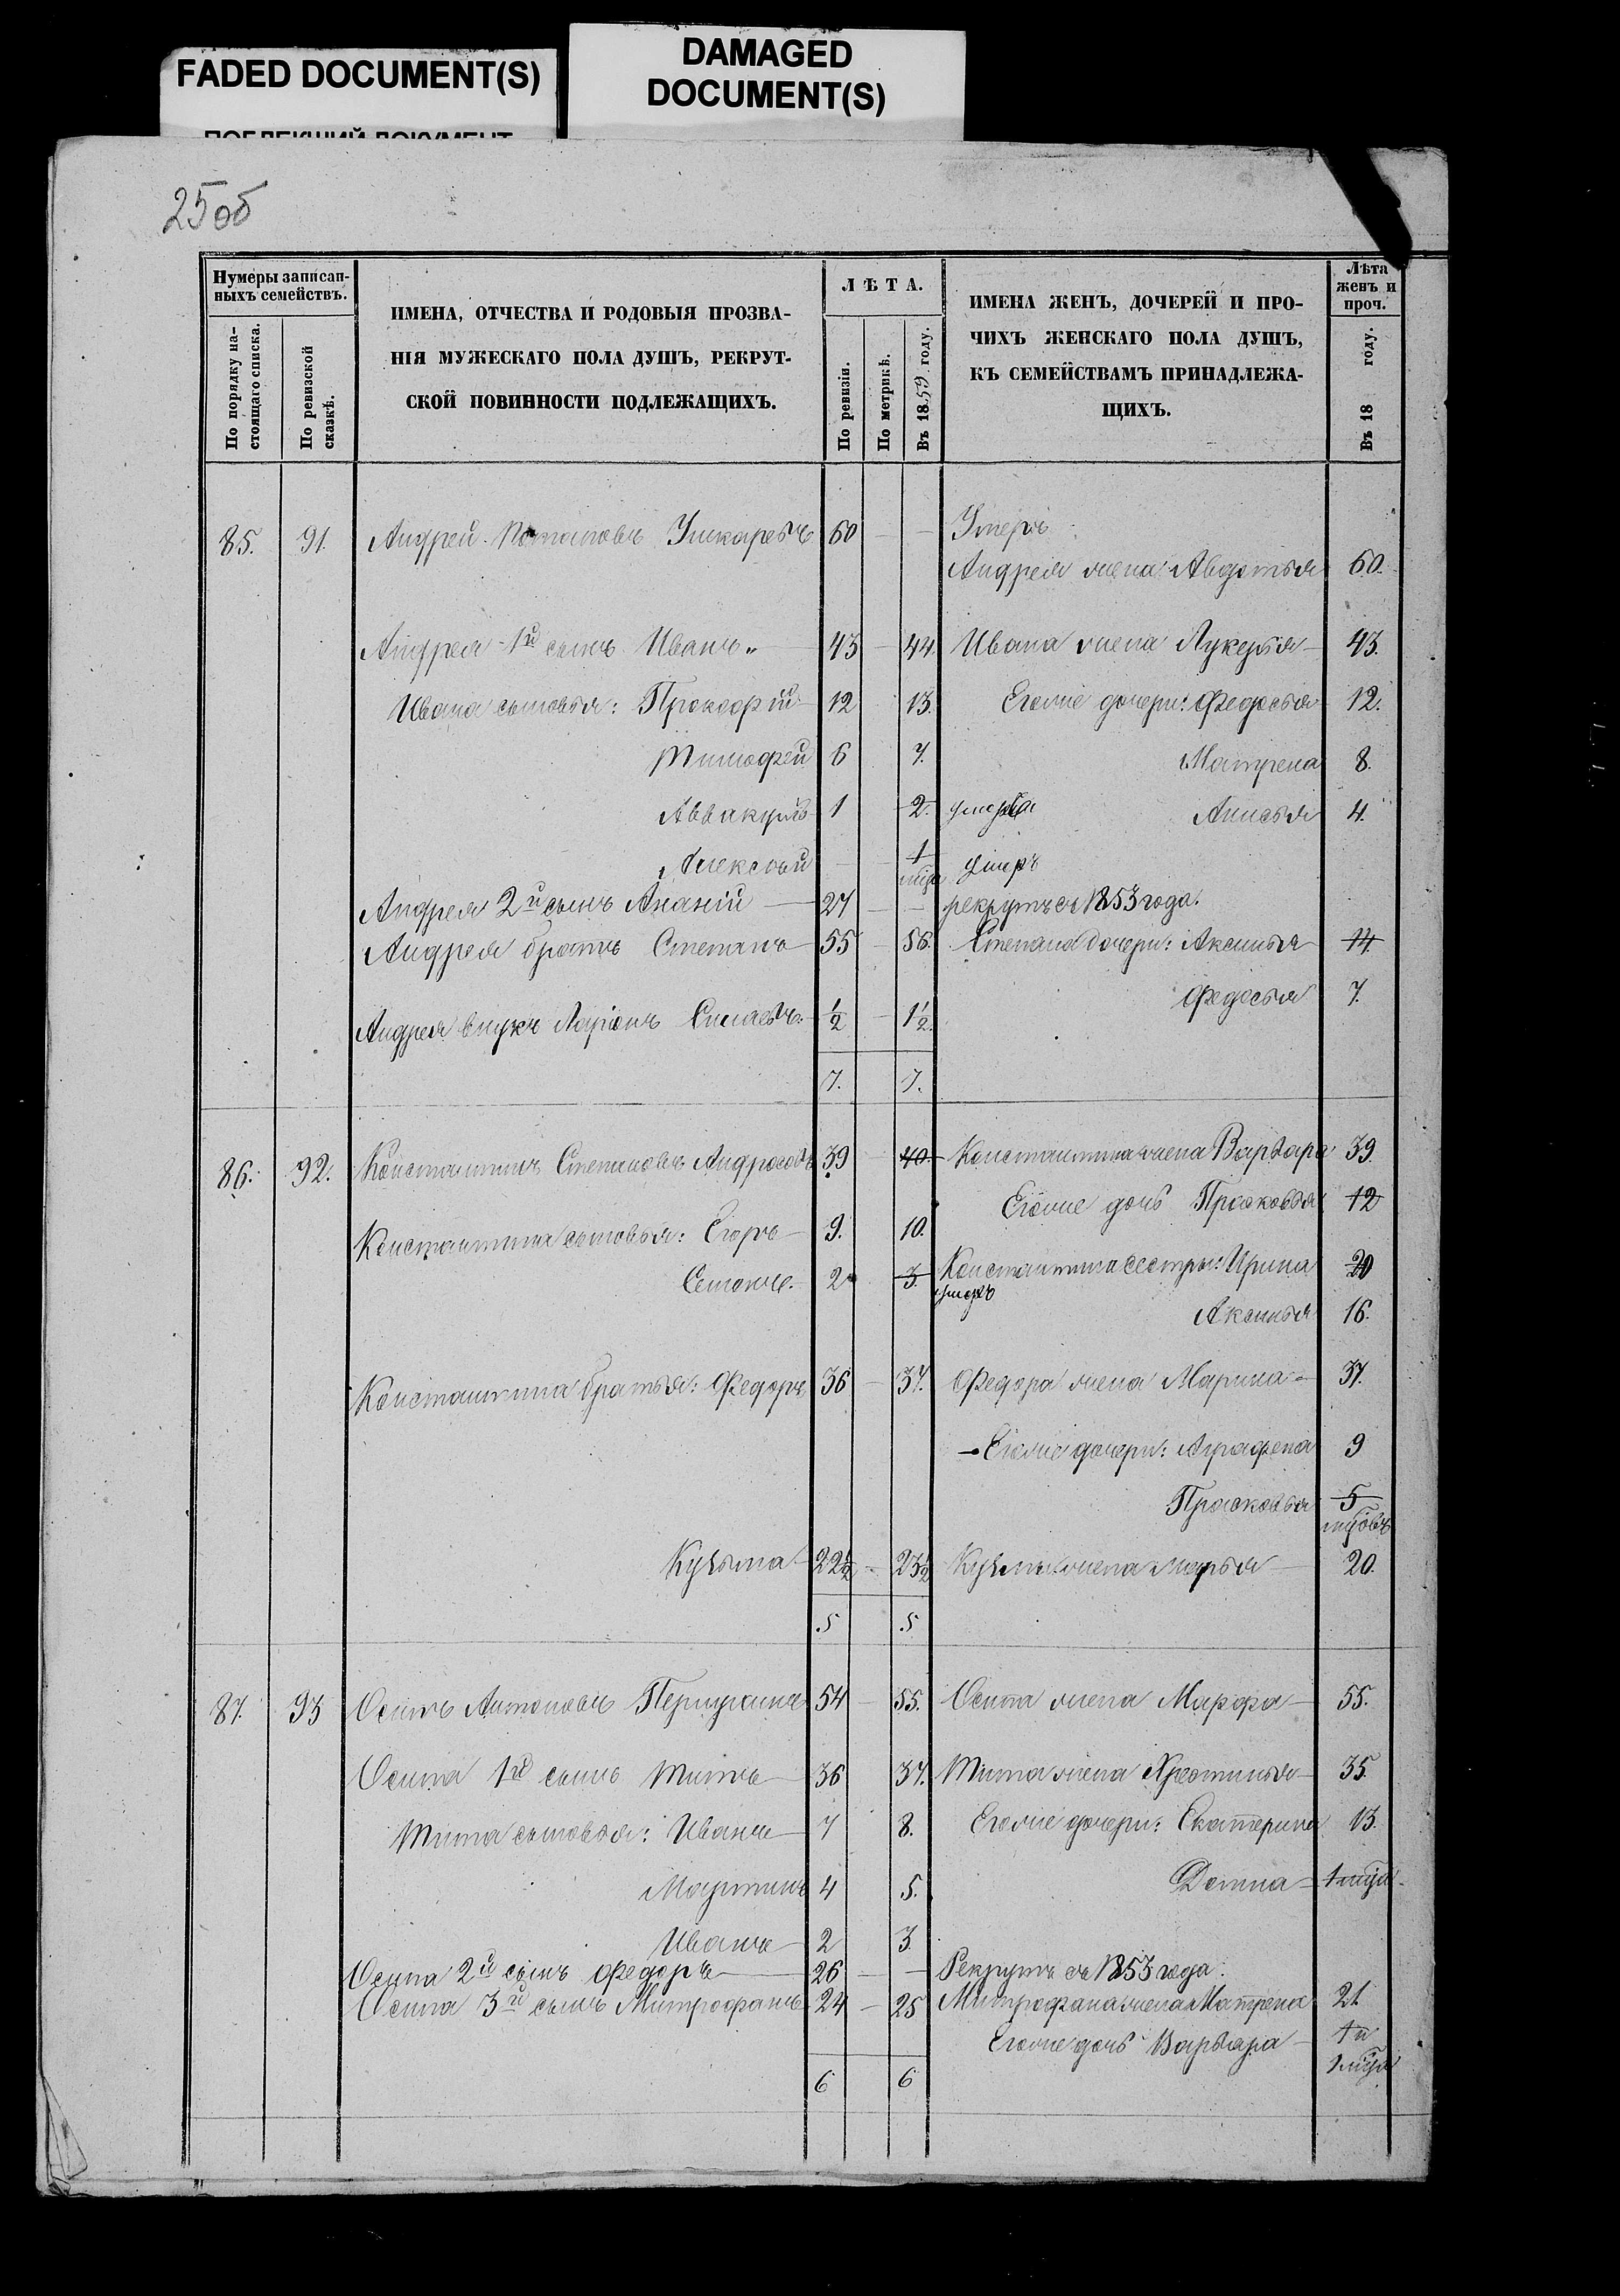 FADED DOCUMENT(S)
DAMAGED
DOCUMENT(S)
25 об
Нумеры записан-
ныхъ семействъ.
По порядку на-
стоящаго списка.
По ревизской
сказкѣ.
ИМЕНА, ОТЧЕСТВА И РОДОВЫЯ ПРОЗВА-
НІЯ МУЖЕСКАГО ПОЛА ДУШЪ, РЕКРУТ-
СКОЙ ПОВИННОСТИ ПОДЛЕЖАЩИХЪ.
ЛѢТА.
По ревизіи.
По метрикѣ.
Въ 1859 году.
ИМЕНА ЖЕНЪ, ДОЧЕРЕЙ И ПРО-
ЧИХЪ ЖЕНСКАГО ПОЛА ДУШЪ,
КЪ СЕМЕЙСТВАМЪ ПРИНАДЛЕЖА-
ЩИХЪ.
Лѣта
женъ и
проч.
Въ 18 году.
85. 91. Андрей Потаповъ 60 — — Умеръ
Андрея жена Авдотья 60.
Андрея 1й сынъ Иванъ 43 — 44. Ивана жена Лукерья 43.
Ивана сыновья: Прокофій 12 13. Егоже дочери: Федосья 12.
Тимофей 6 7. Матрена 8.
Аввакумъ 1 2. умерла Анисья 4.
Алексѣй — 1 мца умеръ
Андрея 2й сынъ Ананій 27 — — рекрутъ съ 1853 года.
Андрея братъ Степанъ 55 — 56. Степана дочери: Аксинья 14.
Федосья 7.
Андрея внукъ Ларіонъ Силаевъ 1/2 — 1 1/2.
7. 7.
86. 92. Константинъ Степановъ Андросовъ 39 — 40. Константина жена Варвара 39
Егоже дочь Прасковья 12
Константина сыновья: Егоръ 9. 10.
Константина сестры: Ирина 20
Семенъ 2 3. умеръ
Аксинья 16.
Константина братья: Федоръ 36 — 37. Федора жена Марина 37.
Егоже дочери: Аграфена 9
Прасковья 5
мцовъ
Кузьма 22 1/2 — 23 1/2 Кузьмы жена Марья 20.
5 5
87. 93 Осипъ Антоновъ 54 — 55. Осипа жена Марфа 55.
Осипа 1й сынъ Титъ 36 37. Тита жена Хрестинья 35.
Тита сыновья: Иванъ 7 8. Егоже дочери: Екатерина 13.
Мартинъ 4 5. Домна 1 мца
Иванъ 2 3
Осипа 2й сынъ Федоръ 26 — — Рекрутъ съ 1853 года.
Осипа 3й сынъ Митрофанъ 24 — 25 Митрофана жена Матрена 21
Егоже дочь Варвара 1 и
1 мца
6 6